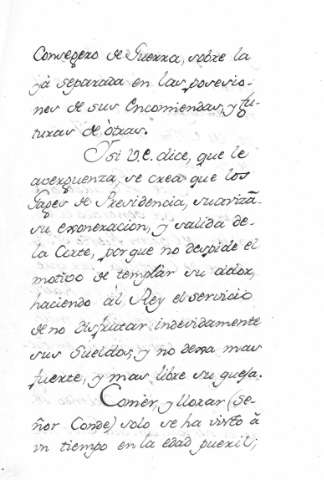 Consegero de Guerra, sobre la
yá separada en las posesio-
nes de sus Encomiendas, y fu-
turas de òtras.
Y si V.E. dice, que le
averguenza se crea que los
Gages de Presidencia, suavizã
su exoneracion, y salida de
la Corte, por que no despide el
motivo de templar su dolor,
haciendo àl Rey el servicio
de no disfrutar indevidamente
sus Sueldos, y no dexa mas
fuerte, y mas libre su queja.
Comer, y llorar (Se-
ñor Conde) solo se ha visto à
un tiempo en la edad pueril;